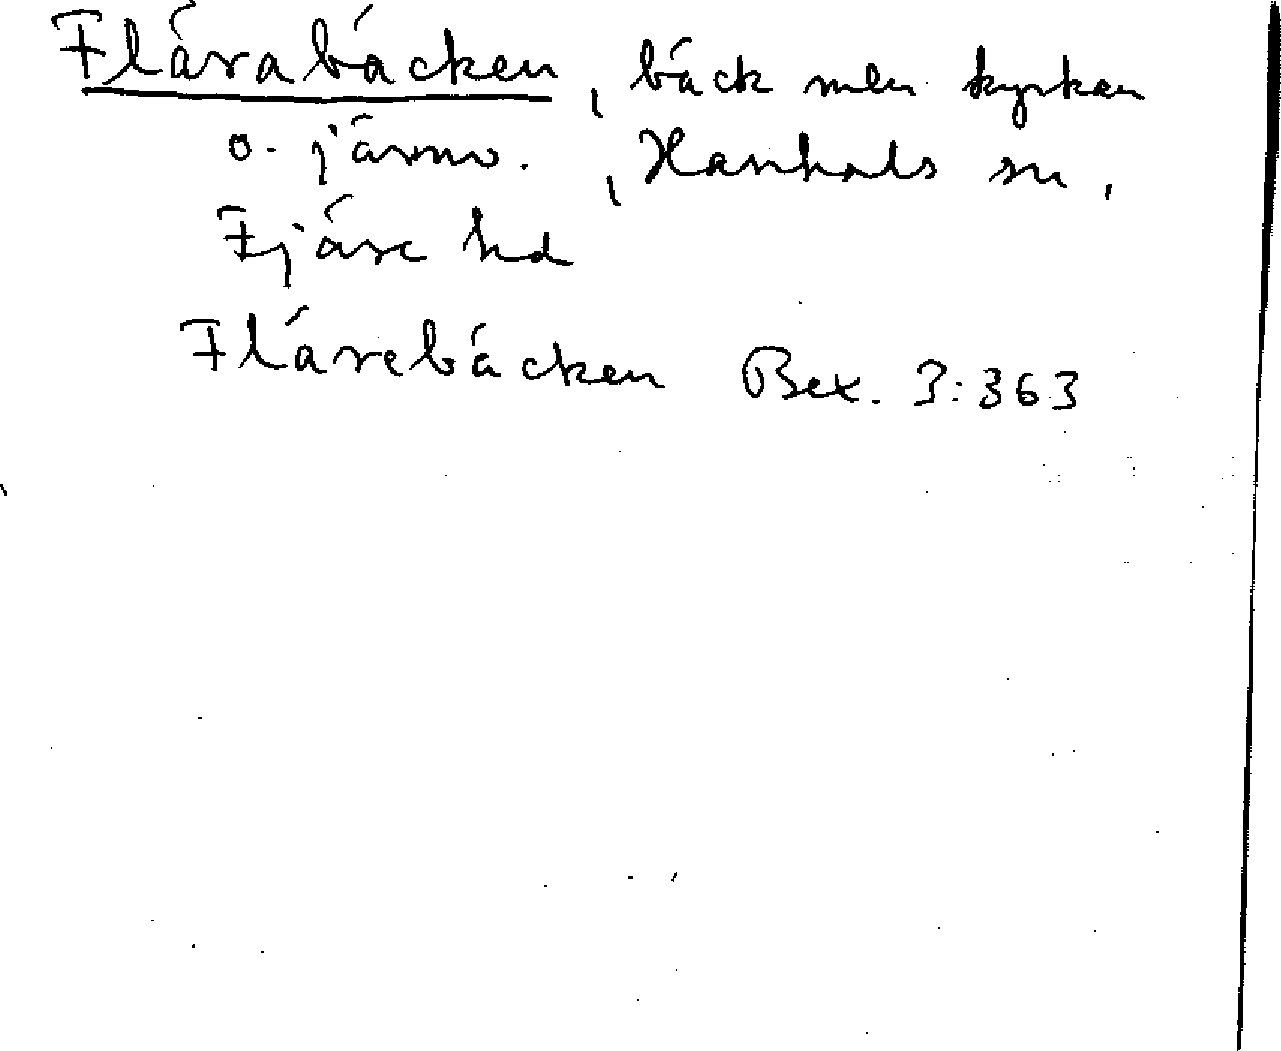 Flärabäcken, bäck mln kyrkan
o. järnv., Hanhals sn,
Fjäre hd
Flärebäcken Bex. 3:363